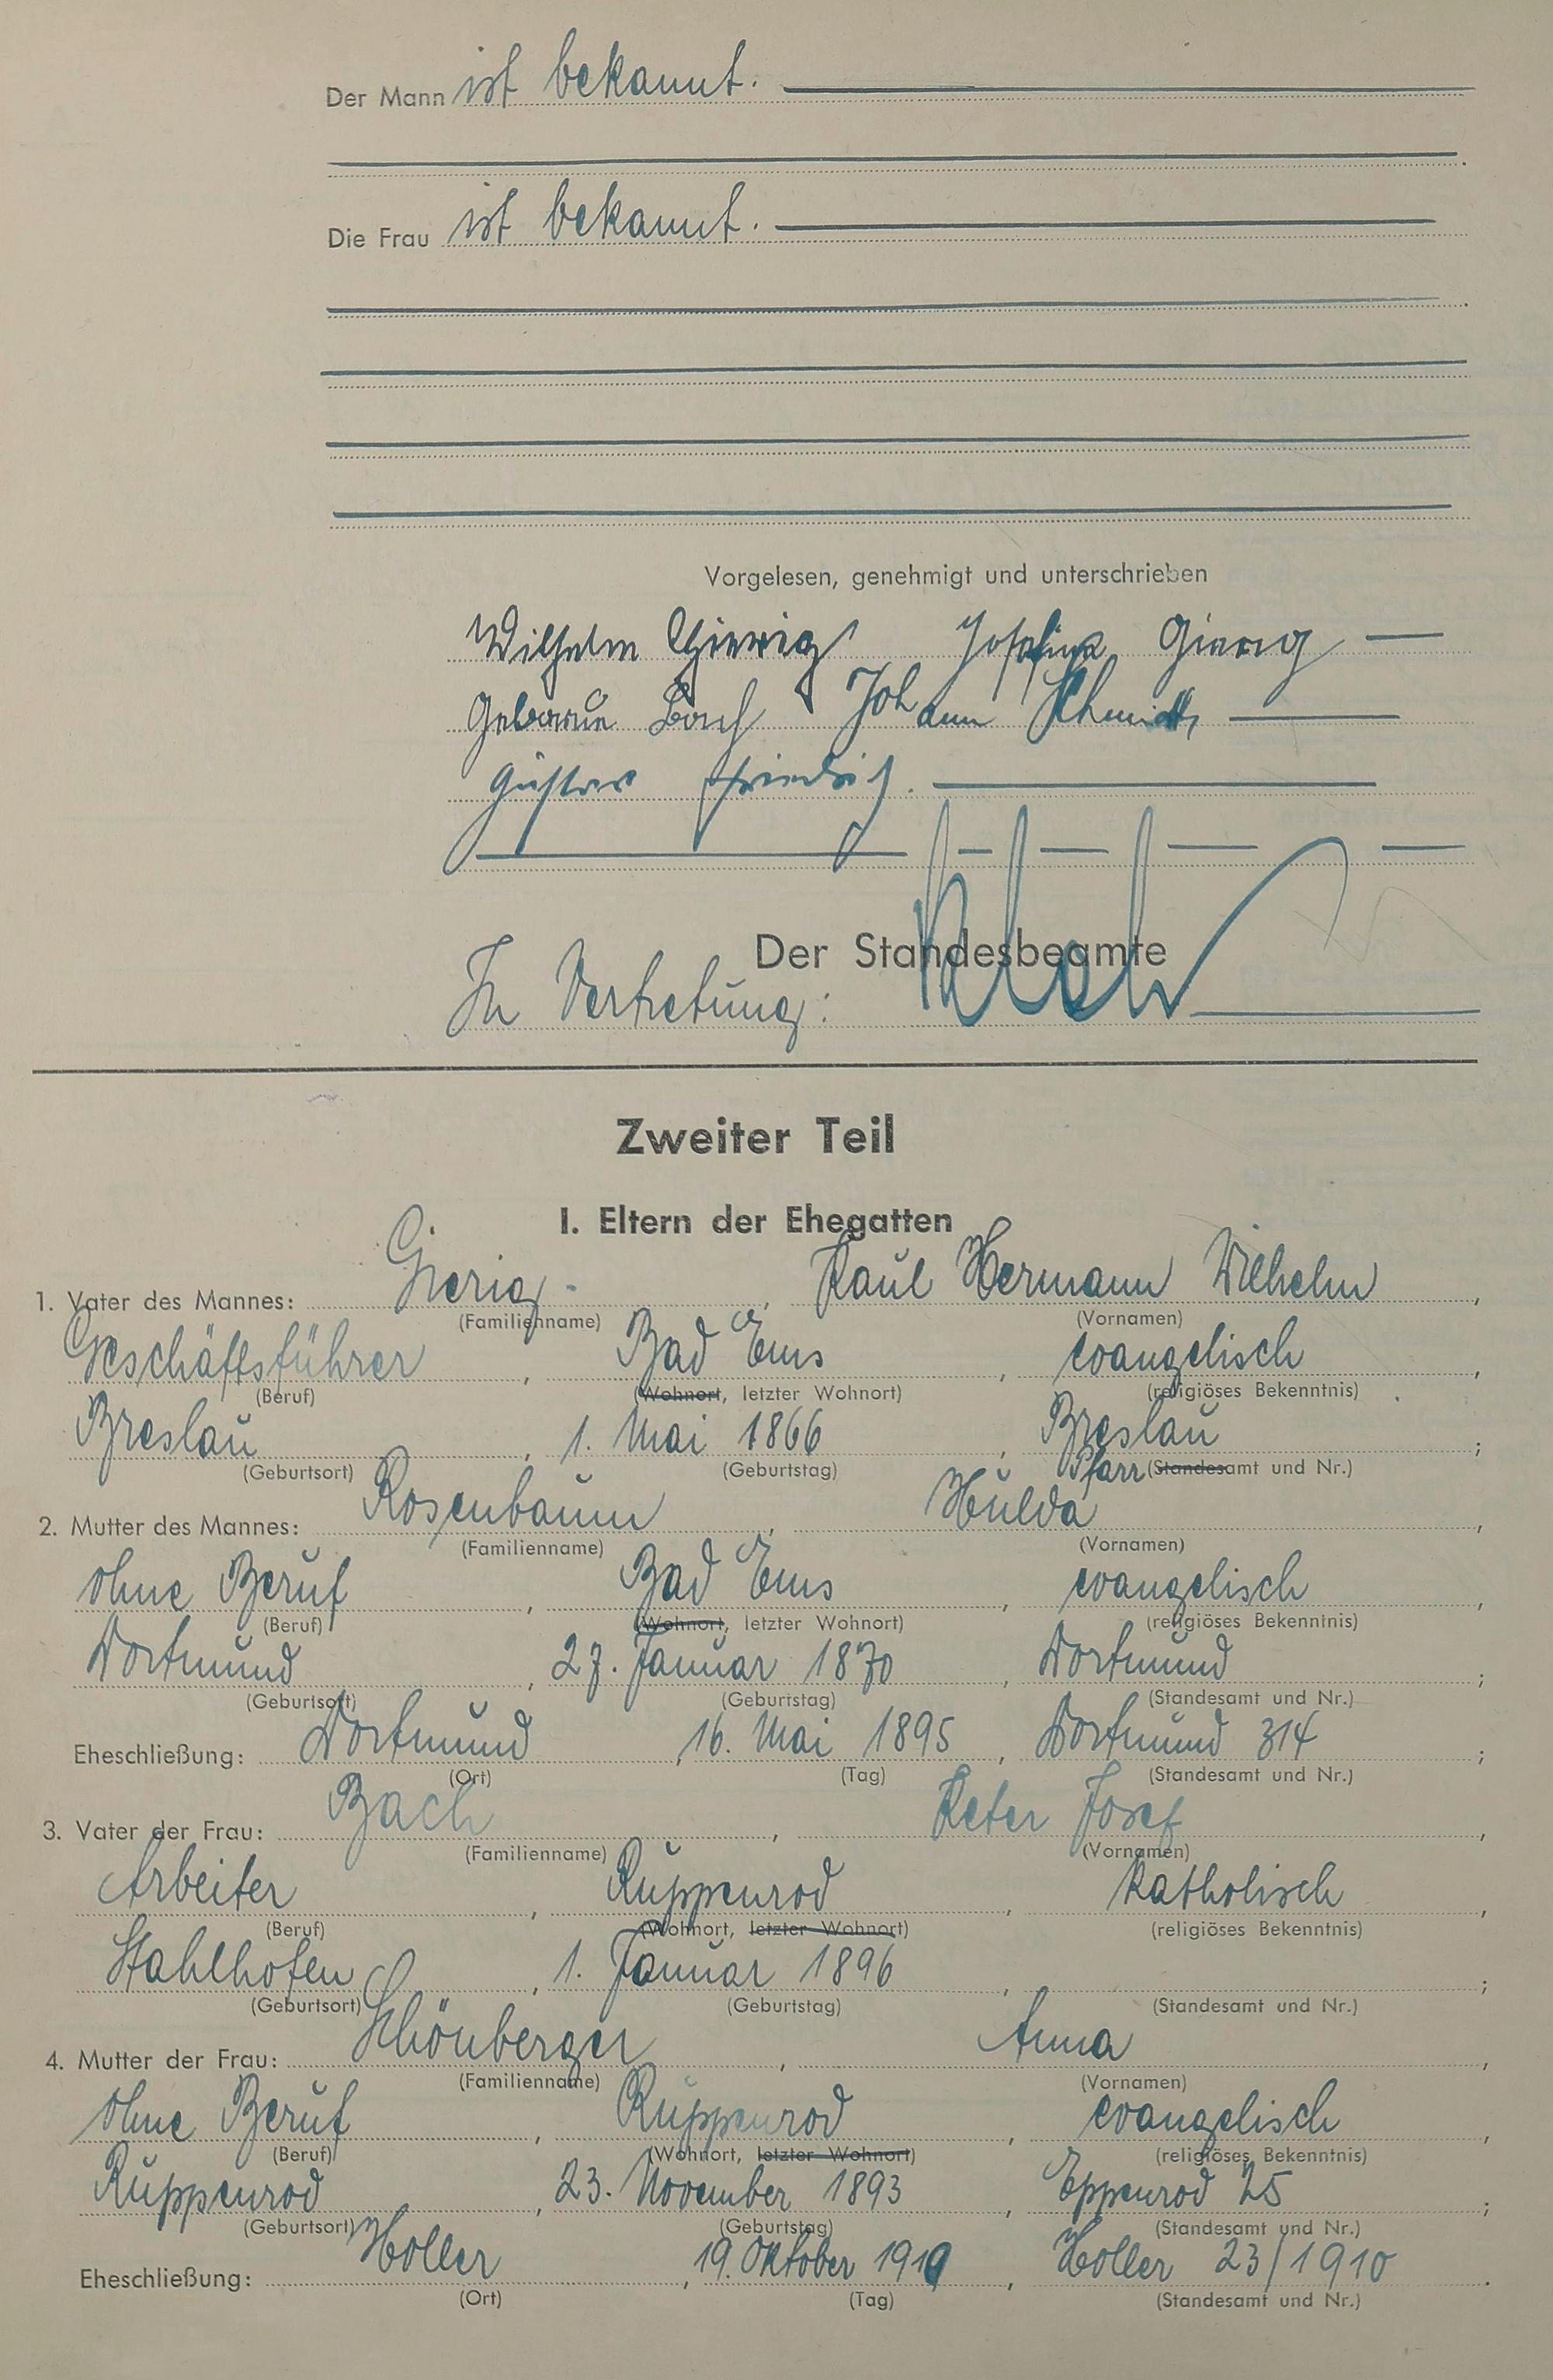 Der Mann ist bekannt.
Die Frau ist bekannt.
Vorgelesen, genehmigt und unterschrieben
Wilhelm Gierig Josefine Gierig
Geborene Bach Johann Schmidt,
Gustav Friedrich.
Der Standesbeamte
In Vertretung:
Zweiter Teil
I. Eltern der Ehegatten
1. Vater des Mannes: Gierig, Paul Hermann Wilhelm,
(Familienname) (Vornamen)
Geschäftsführer, Bad Ems, evangelisch,
(Beruf) (Wohnort, letzter Wohnort) (religiöses Bekenntnis)
Breslau, 1. Mai 1866, Breslau;
(Geburtsort) (Geburtstag) Pfarr (Standesamt und Nr.)
2. Mutter des Mannes: Rosenbaum, Hulda,
(Familienname) (Vornamen)
ohne Beruf, Bad Ems, evangelisch,
(Beruf) (Wohnort, letzter Wohnort) (religiöses Bekenntnis)
Dortmund, 27. Januar 1870, Dortmund;
(Geburtsort) (Geburtstag) (Standesamt und Nr.)
Eheschließung: Dortmund, 16. Mai 1895, Dortmund 314;
(Ort) (Tag) (Standesamt und Nr.)
3. Vater der Frau: Bach, Peter Josef,
(Familienname) (Vornamen)
Arbeiter, Ruppenrod, katholisch,
(Beruf) (Wohnort, letzter Wohnort) (religiöses Bekenntnis)
Stahlhofen, 1. Januar 1896, ;
(Geburtsort) (Geburtstag) (Standesamt und Nr.)
4. Mutter der Frau: Schönberger, Anna,
(Familienname) (Vornamen)
ohne Beruf, Ruppenrod, evangelisch,
(Beruf) (Wohnort, letzter Wohnort) (religiöses Bekenntnis)
Ruppenrod, 23. November 1893, Eppenrod 25;
(Geburtsort) (Geburtstag) (Standesamt und Nr.)
Eheschließung: Holler, 19. Oktober 1910, Holler 23/1910.
(Ort) (Tag) (Standesamt und Nr.)